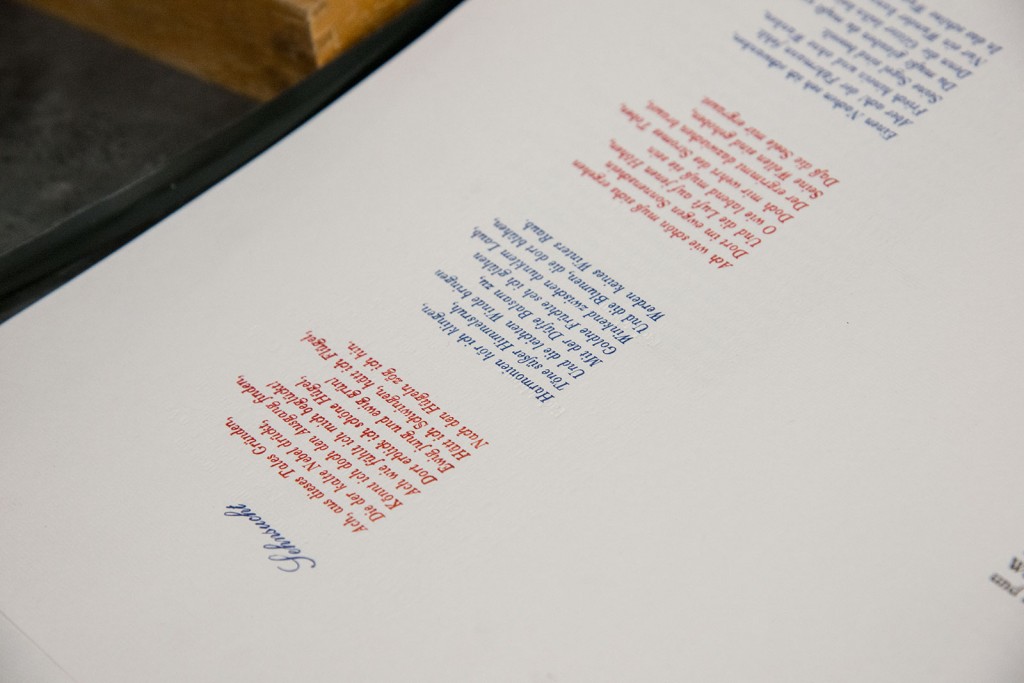 Sehnsucht
Ach, aus dieses Tales Gründen,
Die der kalte Nebel drückt,
Könnt ich doch den Ausgang finden,
Ach wie fühlt ich mich beglückt!
Dort erblick ich schöne Hügel,
Ewig jung und ewig grün!
Hätt ich Schwingen, hätt ich Flügel,
Nach den Hügeln zög ich hin.
Harmonien hör ich klingen,
Töne süßer Himmelsruh,
Und die leichten Winde bringen
Mir der Düfte Balsam zu,
Goldne Früchte seh ich glühen
Winkend zwischen dunkelm Laub,
Und die Blumen, die dort blühen,
Werden keines Winters Raub.
Ach wie schön muß sichs ergehen
Dort im ewgen Sonnenschein,
Und die Luft auf jenen Höhen,
O wie labend muß sie sein
Doch mir wehrt des Stromes Toben,
Der ergrimmt dazwischen braust,
Seine Wellen sind gehoben,
Daß die Seele mir ergraust.
Einen Nachen seh ich schwanken,
Aber ach! der Fährmann fehlt.
Frisch hinein und ohne Wanken,
Seine Segel sind beseelt.
Du mußt glauben, du mußt
Denn die Götter leihn
Nur ein Wunder
In das schöne
und